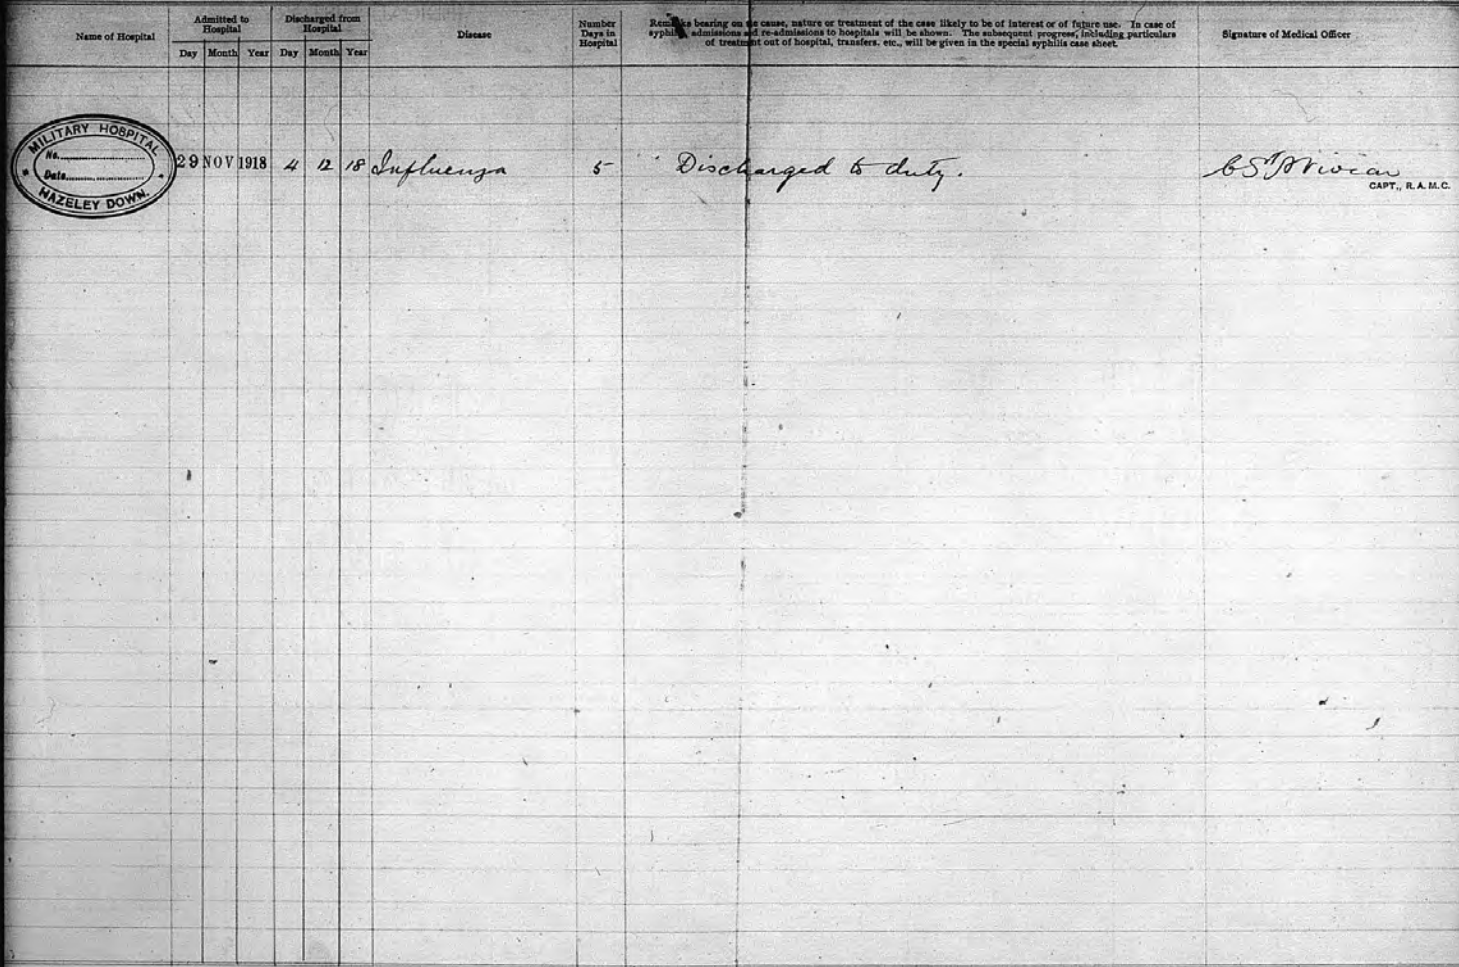 Name of Hospital
Admitted to
Hospital
Day Month Year
Discharged from
Hospital
Day Month Year
Disease
Number
Days in
Hospital
Remarks bearing on the cause, nature or treatment of the case likely to be of interest or of future use. In case of
syphilis, admissions and re-admissions to hospitals will be shown. The subsequent progress, including particulars
of treatment out of hospital, transfers, etc., will be given in the special syphilis case sheet.
Signature of Medical Officer
MILITARY HOSPITAL
No.
Date
HAZELEY DOWN.
29 NOV 1918 4 12 18 Influenza 5 Discharged to duty. Vivian
CAPT., R.A.M.C.